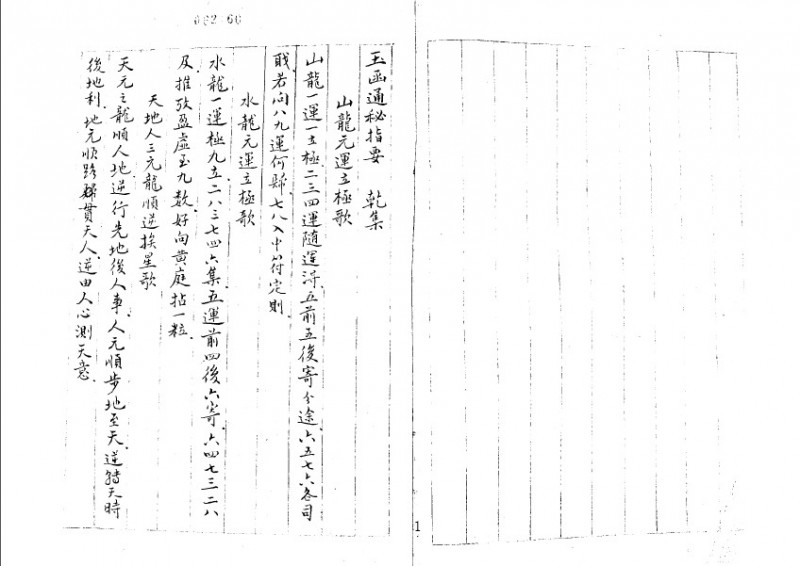 062 60
玉函通秘指要　乾集
山龍元運立極歌
山龍一運一立極二三四運隨運得五前五後寄分途六五七六各司
戝若问八九運何歸七八入中符定則
水龍元運立極歌
水龍一運極九立二八三七四六集五運前四後六寄六四七三二八
及推攷盈虛至九数好向黄庭拈一粒
天地人三元龍順逆挨星歌
天元之龍順人地逆行先地後人事人元順步地至天逆转天時
後地利地元順路貫天人逆由人心測天意
1